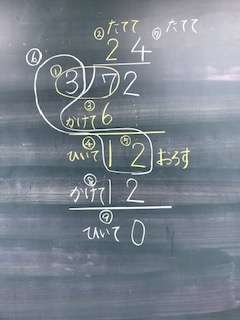 ② たてて 2 4 ⑦ たてて
⑥ ① 3 ) 7 2
③ かけて 6
④ ひいて 1 2 ⑤ おろす
⑧ かけて 1 2
⑨ ひいて 0